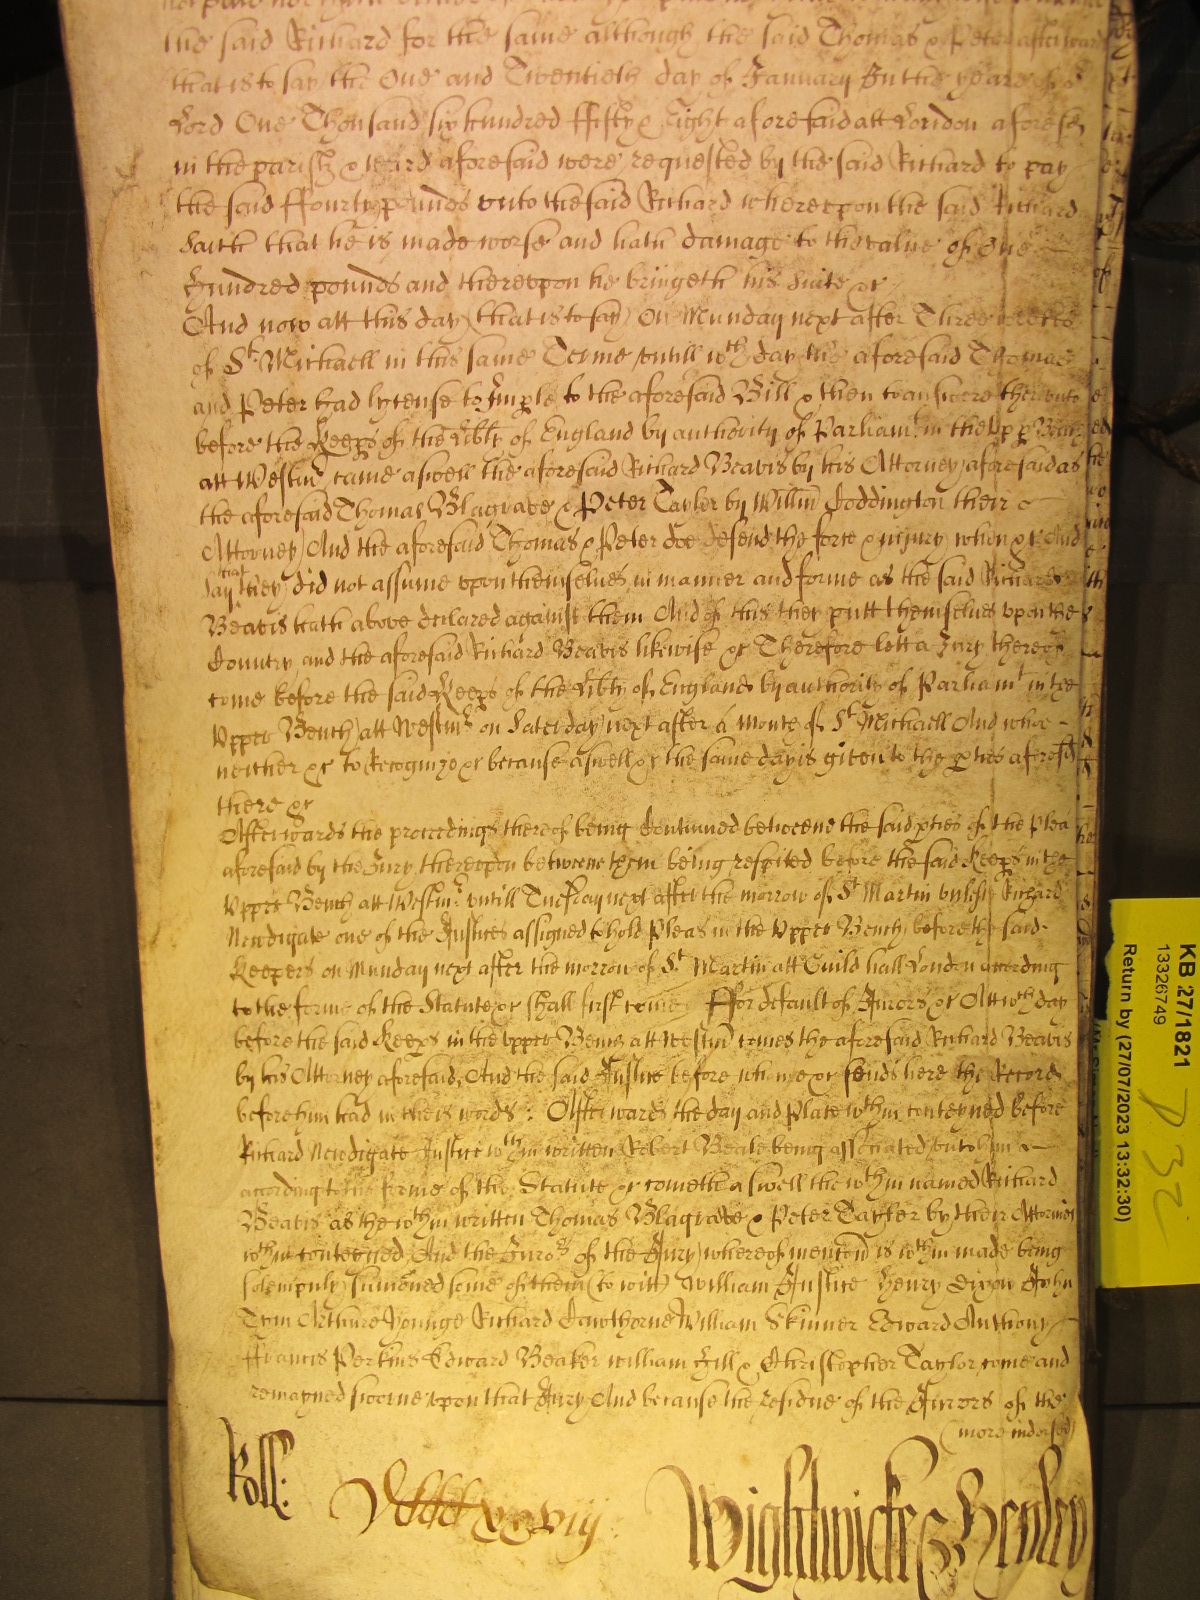 the said Richard for the same although the said Thomas & Peter afterward
that is to say the One and Twentieth day of January In the yeare of
Lord One Thousand six hundred ffifty & Eight aforesaid att London aforesd
in the parish & ward aforesaid were requested by the said Richard to pay
the said ffourty pounds vnto the said Richard wherevpon the said Richard
saith that he is made worse and hath damage to the value of One
Hundred pounds and therevpon he bringeth his suite &c
And now att this day (that is to say) On Munday next after Three weekes
of St Michaell in this same Terme vntill wch day the aforesaid Thomas
and Peter had lycense to Imple to the aforesaid Bill & then to answere therevnto
before the Keeps of the Libty of England by authority of Parliamt in the Vpp Bench
att Westm came aswell the aforesaid Richard Beavis by his Attorney aforesaid as
the aforesaid Thomas Blagrave & Peter Tayler by Willm Doddington their
Attorney And the aforesaid Thomas & Peter doe defend the force & injury when &c And
say that they did not assume vpon themselves in manner and forme as the said Richard
Beavis hath above declared against them And of this they putt themselves vpon the
Country and the aforesaid Richard Beavis likewise &c Therefore lett a Jury thereof
come before the said Keeps of the Libty of England by authority of Parliamt in the
Vpper Bench att Westmr on Saterday next after a Moneth of St Michaell And who
neither &c to Recognize &c because aswell &c the same day is given to the pties aforesd
there &c
Afterwards the proceedings thereof being Continued betweene the said pties of the Plea
aforesaid by the Jury therevpon betweene them being respited before the said Keeps in the
Vpper Bench att Westmr vntill Tuesday next after the morrow of St Martin vnlesse Richard
Newdigate one of the Justices assigned to hold Pleas in the Vpper Bench before the said
Keepers on Munday next after the morrow of St Martin att Guild hall London according
to the forme of the Statute &c shall first come ffor default of Jurors &c Att wch day
before the said Keeps in the vpper Bench att Westm comes the aforesaid Richard Beavis
by his Attorney aforesaid And the said Justice before whome &c sends here the Record
before him had in theis words: Afterwards the day and place wthin conteyned before
Richard Newdigate Justice wthin written Robert Beale being associated vnto him
according to the forme of the Statute &c cometh aswell the wthin named Richard
Beavis as the wthin written Thomas Blagrave & Peter Tayler by their Attornies
wthin conteyned And the Jurors of the Jury whereof mencon is wthin made being
solempnly sumoned some of them (to witt) William Justice Henry Dixon John
Trim Arthure Younge Richard Hawthorne William Skinner Edward Anthony
ffrancis Perkins Edward Beaker william Hill & Christopher Taylor come and
remayned sworne vpon that Jury And because the residue of the Jurors of the
(more indorsed)
Roll:
Wightwicke & Henley
KB 27/1821
13326749
Return by (27/07/2023 13:32:30)